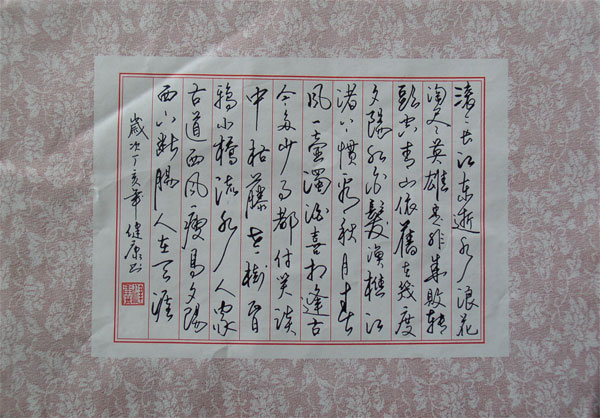 滚滚長江東逝水浪花
淘尽英雄是非成敗转
頭空青山依舊在幾度
夕陽红白髮渔樵江
渚上惯看秋月春
风一壶濁酒喜相逢古
今多少事都付笑谈
中枯藤老樹昏
鴉小橋流水人家
古道西风瘦马夕陽
西下断腸人在天涯
歲次丁亥年健康书